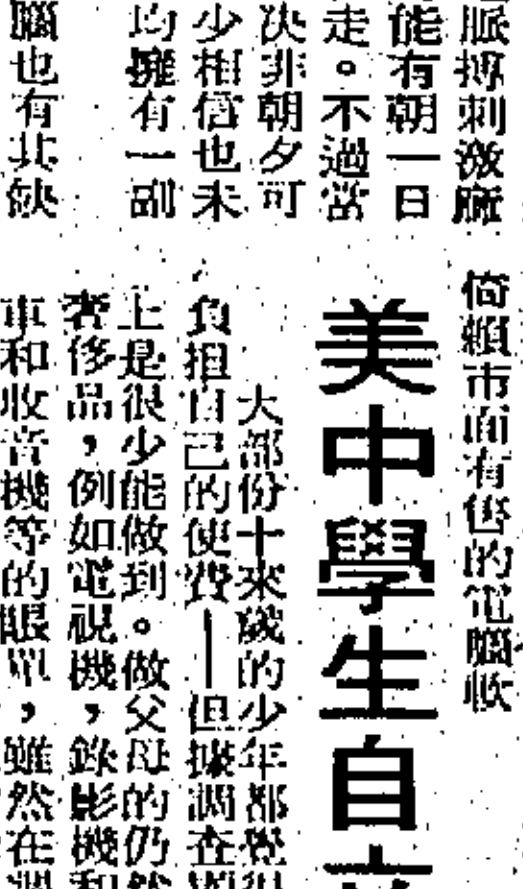 脈搏刺激廠
能有朝一日
走。不過當
决非朝夕可
少相信也未
均擁有一副
腦也有其缺
倚賴市面有售的電腦軟
美中學生自
大部份十來歲的少年都覺得
負担自己的使費——但據調查顯
上是很少能做到。做父母的仍然
奢侈品，例如電視機，錄影機和
車和收音機等的賬單，雖然在調